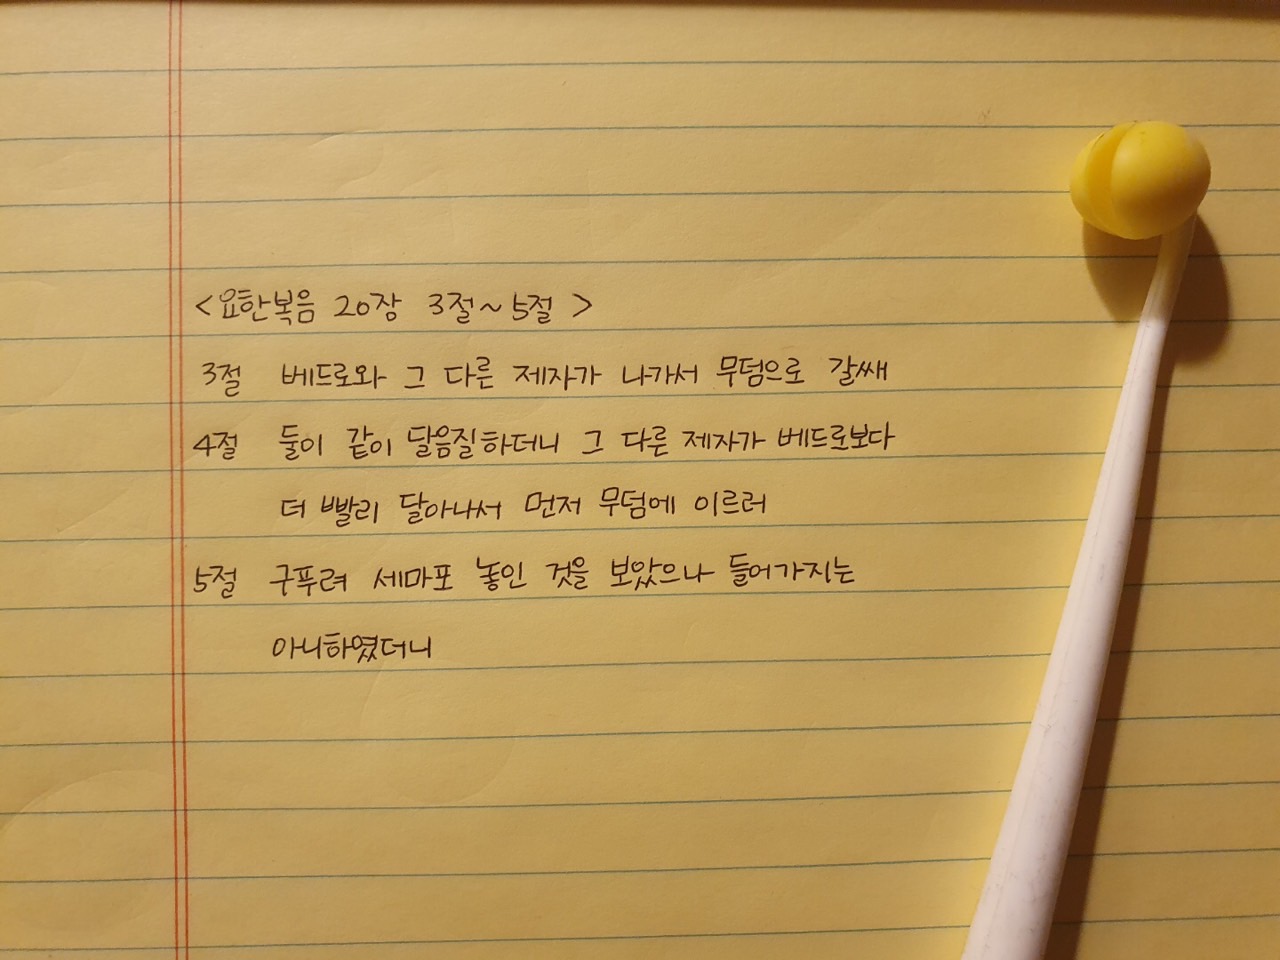 <요한복음 20장 3절~5절>
3절 베드로와 그 다른 제자가 나가서 무덤으로 갈쌔
4절 둘이 같이 달음질하더니 그 다른 제자가 베드로보다
더 빨리 달아나서 먼저 무덤에 이르러
5절 구푸려 세마포 놓인 것을 보았으나 들어가지는
아니하였더니